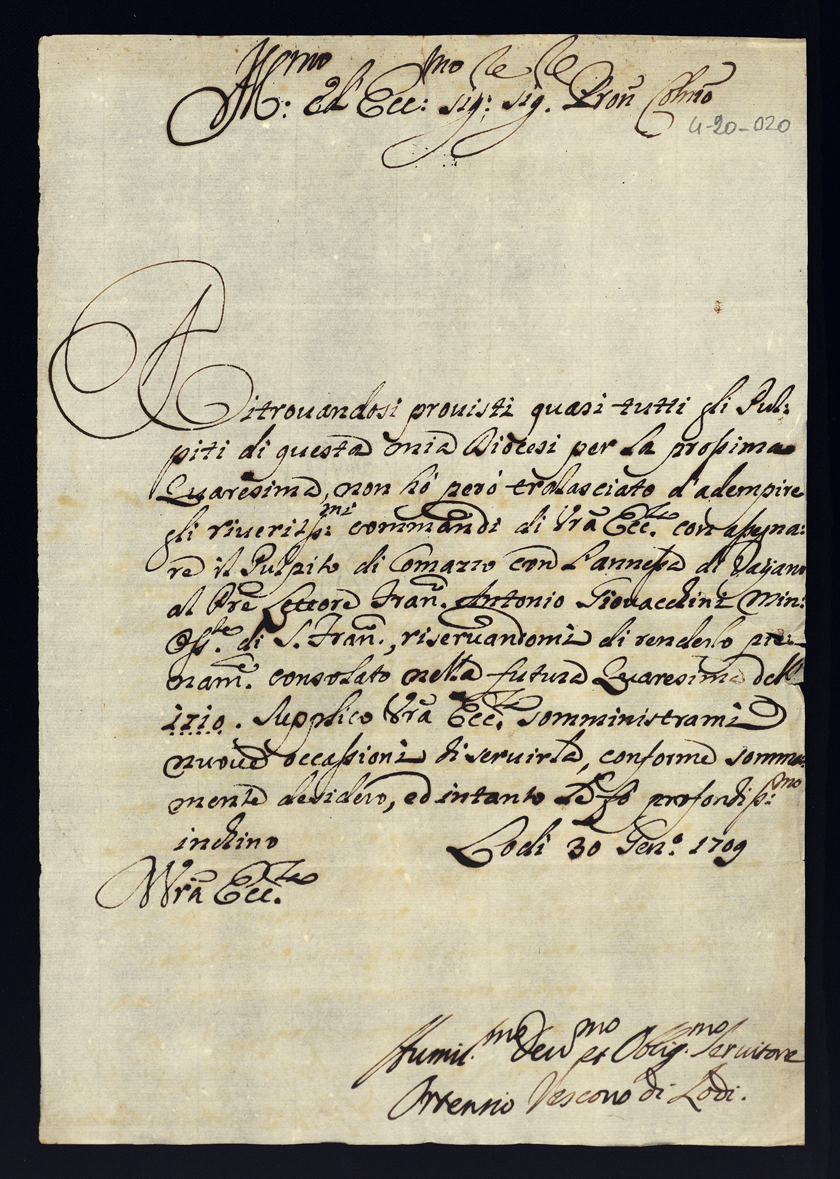 Ill:mo ed Ecc:mo Sig:re Sig.re Pron Colmo
4-20-020
Ritrouandosi prouisti quasi tutti gli Pul:
piti di questa mia Diocesi per la prossima
Quaresima, non hò però tralasciato d'adempire
gli riueritiss:mi commandi di Vra Ecc.za con assegna:
re il Pulpito di Comazzo con l'annessa di
al Pre Lettore Fran. Antonio Giouacchini Min:
Oss.te di S. Fran., riseruandomi di renderlo pie:
nam. consolato nella futura Quaresima dell
1710. Supplico Vra Ecc.za somministrami
nuoue occassioni di seruirla, conforme somma:
mente desidero, ed intanto le fò profondiss:mo
inchino
Lodi 30 Gen.o 1709
Vra Ecc.za
Humil.mo Deu.mo et Oblig.mo Seruitore
Ortensio Vescouo di Lodi.